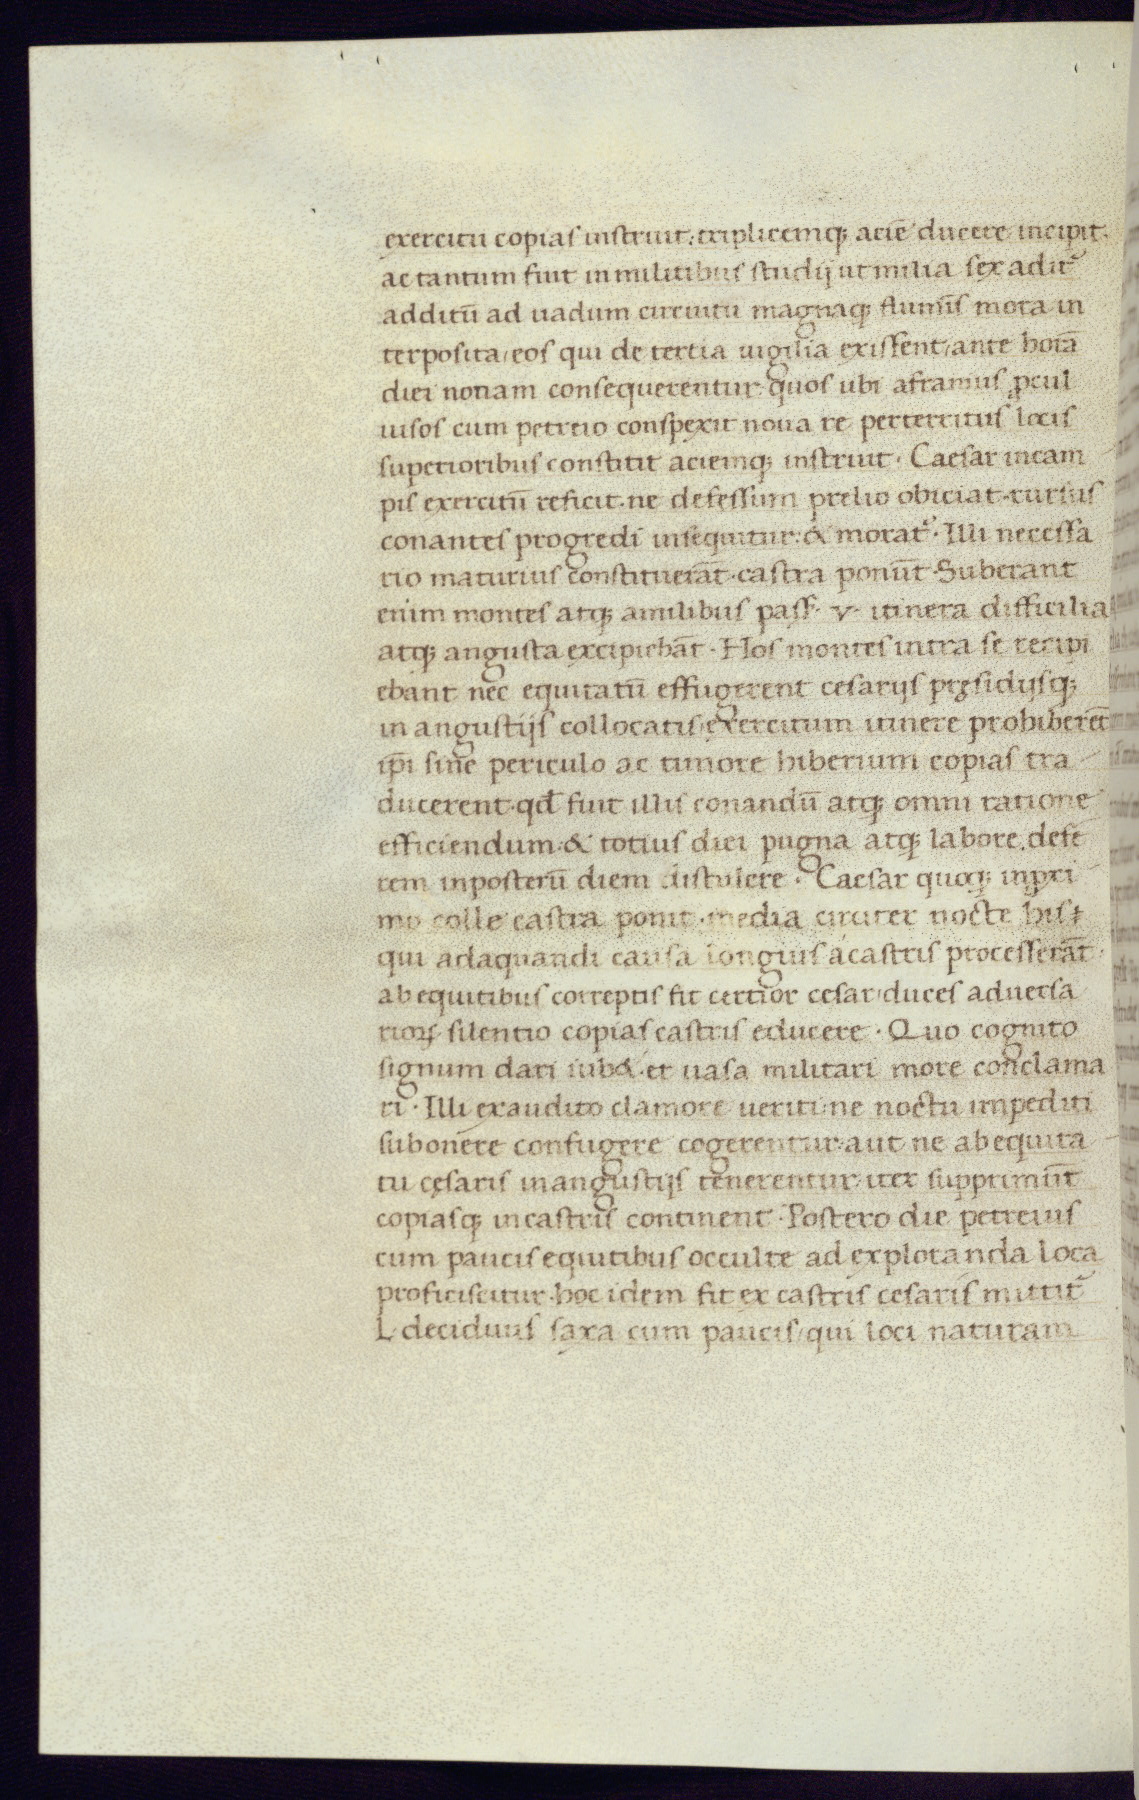 exercitu copias instruit. triplicemq; aciē ducere incipit.
ac tantum fuit in militibus studij ut milia sex adit᷑
additū ad uadum circuitu magnaq; flumīs mora in
terposita/ eos qui de tertia uigilia exissent/ ante horā
diei nonam consequerentur. quos ubi aframus ꝓcul
uisos cum petreio conspexit noua re perterritus locis
superioribus constitit aciemq; instruit. Caesar incam
pis exercitū reficit. ne defessum prelio obiciat. rursus
conantes progredi insequitur. & morat᷑. Illi necessa
rio maturius constituerāt. castra ponūt. Suberant
enim montes atq; amilibus pass. v. itinera difficilia
atq; angusta excipiebāt. Hos montes intra se recipi
ebant nec equitatū effugerent cesarijs pręsidijsq;
in angustijs collocatis/ exercitum itinere prohiberēt
ip̄i sine periculo ac timore hiberium copias tra
ducerent. qd̄ fuit illis conandū atq; omni ratione
efficiendum. & totius diei pugna atq; labore. defe
rem inposterū diem distulere. Caesar quoq; inpri
mo colle castra ponit. media circiter nocte his
qui adaquandi causa longius acastris processerāt.
ab equitibus correptis fit certior cesar/ duces aduersa
rioꝝ silentio copias castris educere. Quo cognito
signum dari iub&. et uasa militari more conclama
ri. Illi exaudito clamore ueriti. ne noctu impediti
subonere confugere cogerentur. aut ne abequita
tu cęsaris inangustijs tenerentur. iter supprimūt
copiasq; incastris continent. Postero die petreius
cum paucis equitibus occulte ad exploranda loca
proficiscitur. hoc idem fit ex castris cesaris mittit᷑
L. decidius saxa cum paucis/ qui loci naturam